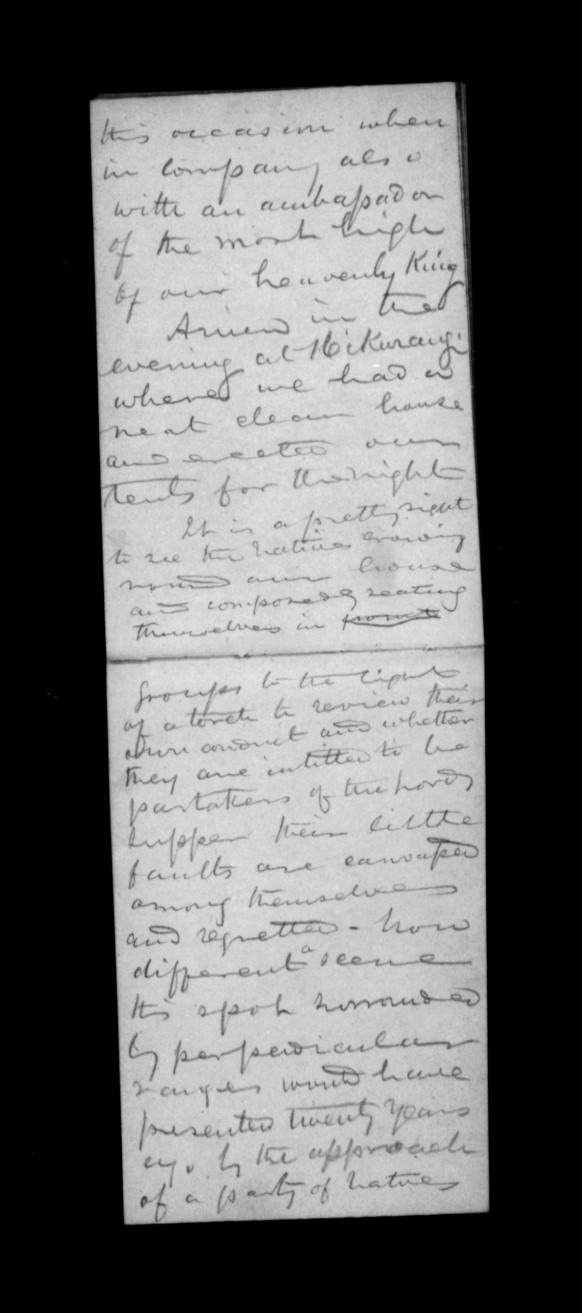 this occasion when
in company also
with an ambassador
of the most high
of our heavenly King
Arrived in the
evening at Hikurangi
where we had a
neat clean house
and erected our
tents for the night
It is a pretty sight
to see the natives crowding
round our house
and composedly seating
themselves in
groups to the light
of a torch to review their
own conduct and whether
they are intitled to be
partakers of the Lords
supper their little
faults are canvassed
among themselves
and regretted - how
different a scene
this spot surrounded
by perpedicular
ranges would have
presented twenty years
ago by the approach
of a party of natives